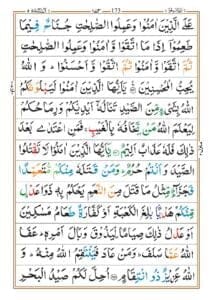 عَلَى الَّذِيْنَ اٰمَنُوْا وَعَمِلُوا الصّٰلِحٰتِ جُنَاحٌ فِيْمَا
طَعِمُوْۤا اِذَا مَا اتَّقَوْا وَّاٰمَنُوْا وَعَمِلُوا الصّٰلِحٰتِ
ثُمَّ اتَّقَوْا وَّاٰمَنُوْا ثُمَّ اتَّقَوْا وَّاَحْسَنُوْا ؕ وَاللّٰهُ
يُحِبُّ الْمُحْسِنِيْنَ ۝ يٰۤاَيُّهَا الَّذِيْنَ اٰمَنُوْا لَيَبْلُوَنَّكُمُ
اللّٰهُ بِشَيْءٍ مِّنَ الصَّيْدِ تَنَالُهٗۤ اَيْدِيْكُمْ وَرِمَاحُكُمْ
لِيَعْلَمَ اللّٰهُ مَنْ يَّخَافُهٗ بِالْغَيْبِ ۚ فَمَنِ اعْتَدٰى بَعْدَ
ذٰلِكَ فَلَهٗ عَذَابٌ اَلِيْمٌ ۝ يٰۤاَيُّهَا الَّذِيْنَ اٰمَنُوْا لَا تَقْتُلُوا
الصَّيْدَ وَاَنْتُمْ حُرُمٌ ؕ وَمَنْ قَتَلَهٗ مِنْكُمْ مُّتَعَمِّدًا
فَجَزَآءٌ مِّثْلُ مَا قَتَلَ مِنَ النَّعَمِ يَحْكُمُ بِهٖ ذَوَا عَدْلٍ
مِّنْكُمْ هَدْيًۢا بٰلِغَ الْكَعْبَةِ اَوْ كَفَّارَةٌ طَعَامُ مَسٰكِيْنَ
اَوْ عَدْلُ ذٰلِكَ صِيَامًا لِّيَذُوْقَ وَبَالَ اَمْرِهٖ ؕ عَفَا
اللّٰهُ عَمَّا سَلَفَ ؕ وَمَنْ عَادَ فَيَنْتَقِمُ اللّٰهُ مِنْهُ ؕ وَ
اللّٰهُ عَزِيْزٌ ذُو انْتِقَامٍ ۝ اُحِلَّ لَكُمْ صَيْدُ الْبَحْرِ